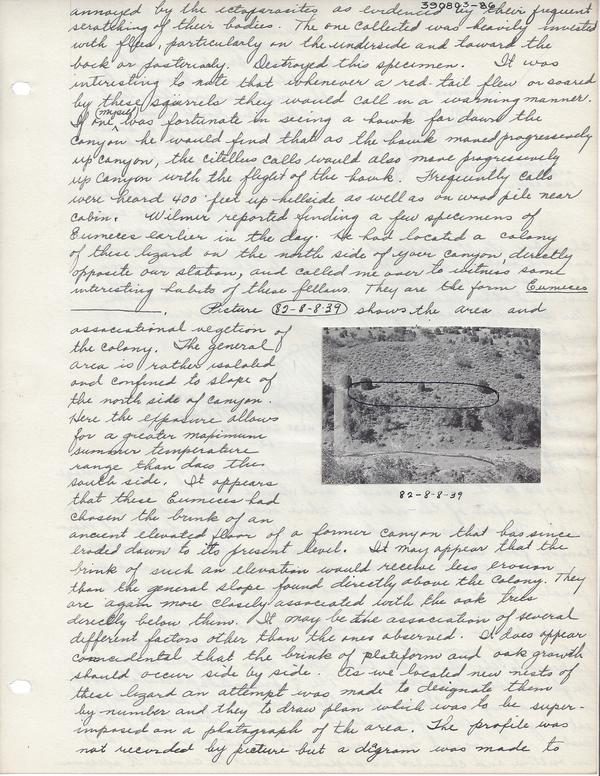 390893-86
annoyed by the ectoparasites as evidenced by their frequent
scratching of their bodies. The one collected was heavily invested
with flies, particularly on the underside and toward the
back or posteriorly. Destroyed this specimen. It was
interesting to note that whenever a red-tail flew or soared
by these squirrels they would call in a warning manner.
If one (myself) was fortunate in seeing a hawk far down the
canyon he would find that as the hawk moved progressively
up canyon, the citellus calls would also move progressively
up canyon with the flight of the hawk. Frequently calls
were heard 400 feet up hillside as well as on wood pile near
cabin. Wilmer reported finding a few specimens of
Eumeces earlier in the day. He had located a colony
of these lizard on the north side of canyon, directly
opposite our station, and called me over to witness some
interesting habits of these fellows. They are the form Eumeces
. Picture 82-8-8-39 shows the area and
associational vegetion of
the colony. The general
area is rather isolated
and confined to slope of
the north side of canyon.
Here the exposure allows
for a greater maximum
summer temperature
range than does the
south side. It appears
that these Eumeces had
chosen the brink of an
82-8-8-39
ancient elevated floor of a former canyon that has since
eroded down to its present level. It may appear that the
brink of such an elevation would receive less erosion
than the general slope found directly above the colony. They
are again more closely associated with the oak trees
directly below them. It may be the association of several
different factors other than the ones observed. It does appear
coincidental that the brink of platform and oak growth
should occur side by side. As we located new nests of
these lizard an attempt was made to designate them
by number and they to draw plan which was to be super-
imposed on a photograph of the area. The profile was
not recorded by picture but a digram was made to